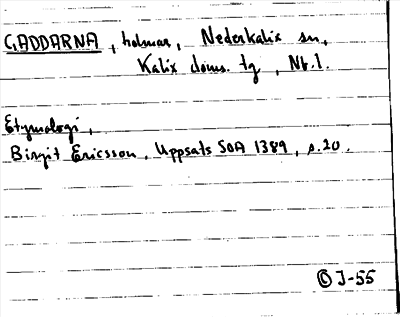 GADDARNA, holmar, Nederkalix sn,
Kalix doms. tg, Nb.l.
Etymologi,
Birgit Ericsson, Uppsats SOA 1389, s.20.
© J-55